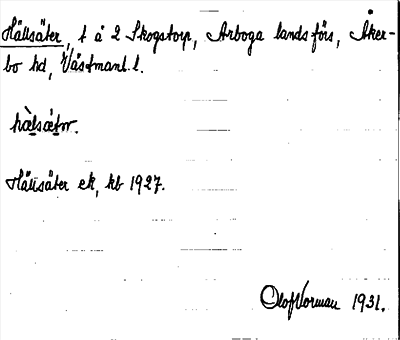 Hällsäter, t å 2 Skogstorp, Arboga landsförs, Åker-
bo hd, Västmanl. l.
hàlsǽtrr.
Hällsäter ek, kb 1927.
Olof Norman 1931.